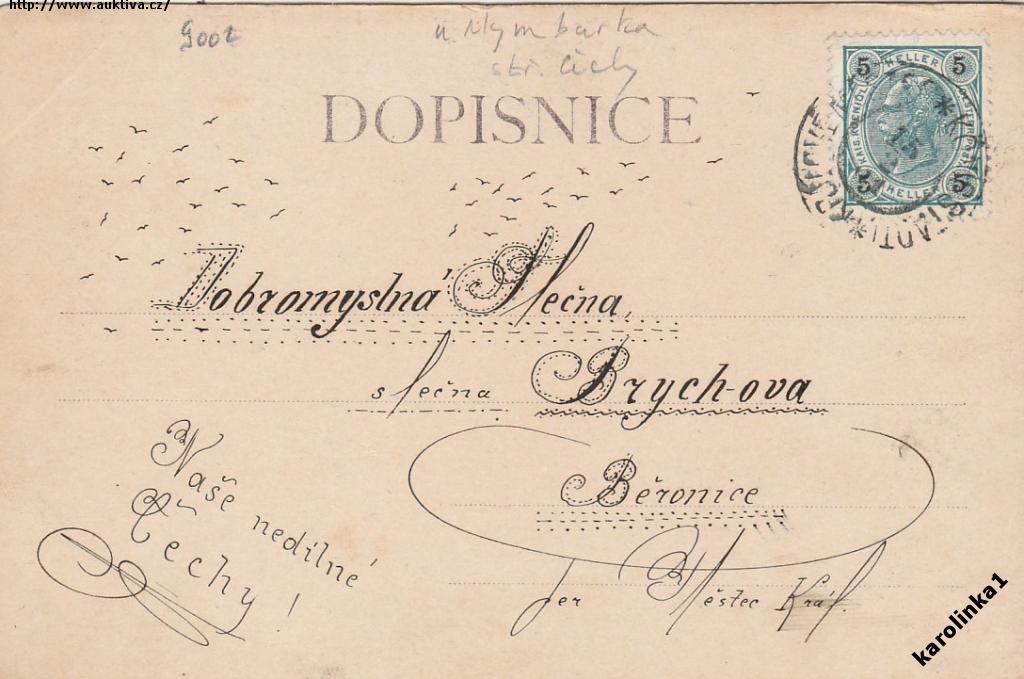 http://www.auktiva.cz/
u Nymburka
stř. Čechy
DOPISNICE
5 HELLER 5
5 HELLER 5
Dobromyslná Slečna,
slečna Brych-ova
Běronice
per Městec Král.
Naše nedílné
Čechy!
karolinka1